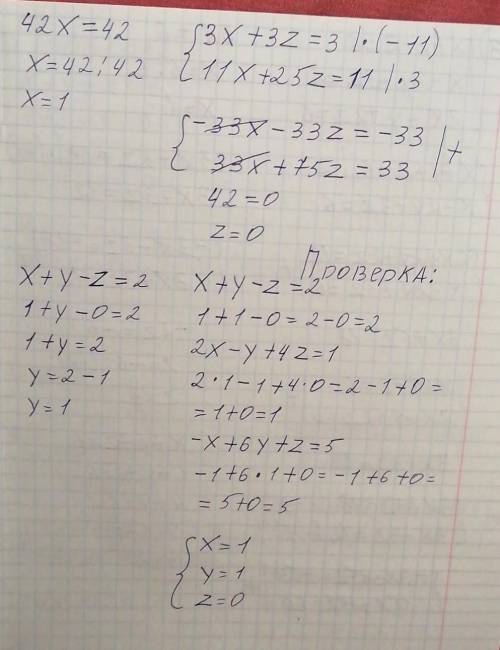 42x=42
x=42:42
x=1
3x+3z=3 |·(-11)
11x+25z=11 |·3
-33x-33z=-33
33x+75z=33 |+
42=0
z=0
x+y-z=2
1+y-0=2
1+y=2
y=2-1
y=1
Проверка:
x+y-z=2
1+1-0=2-0=2
2x-y+4z=1
2·1-1+4·0=2-1+0=
=1+0=1
-x+6y+z=5
-1+6·1+0=-1+6+0=
=5+0=5
x=1
y=1
z=0